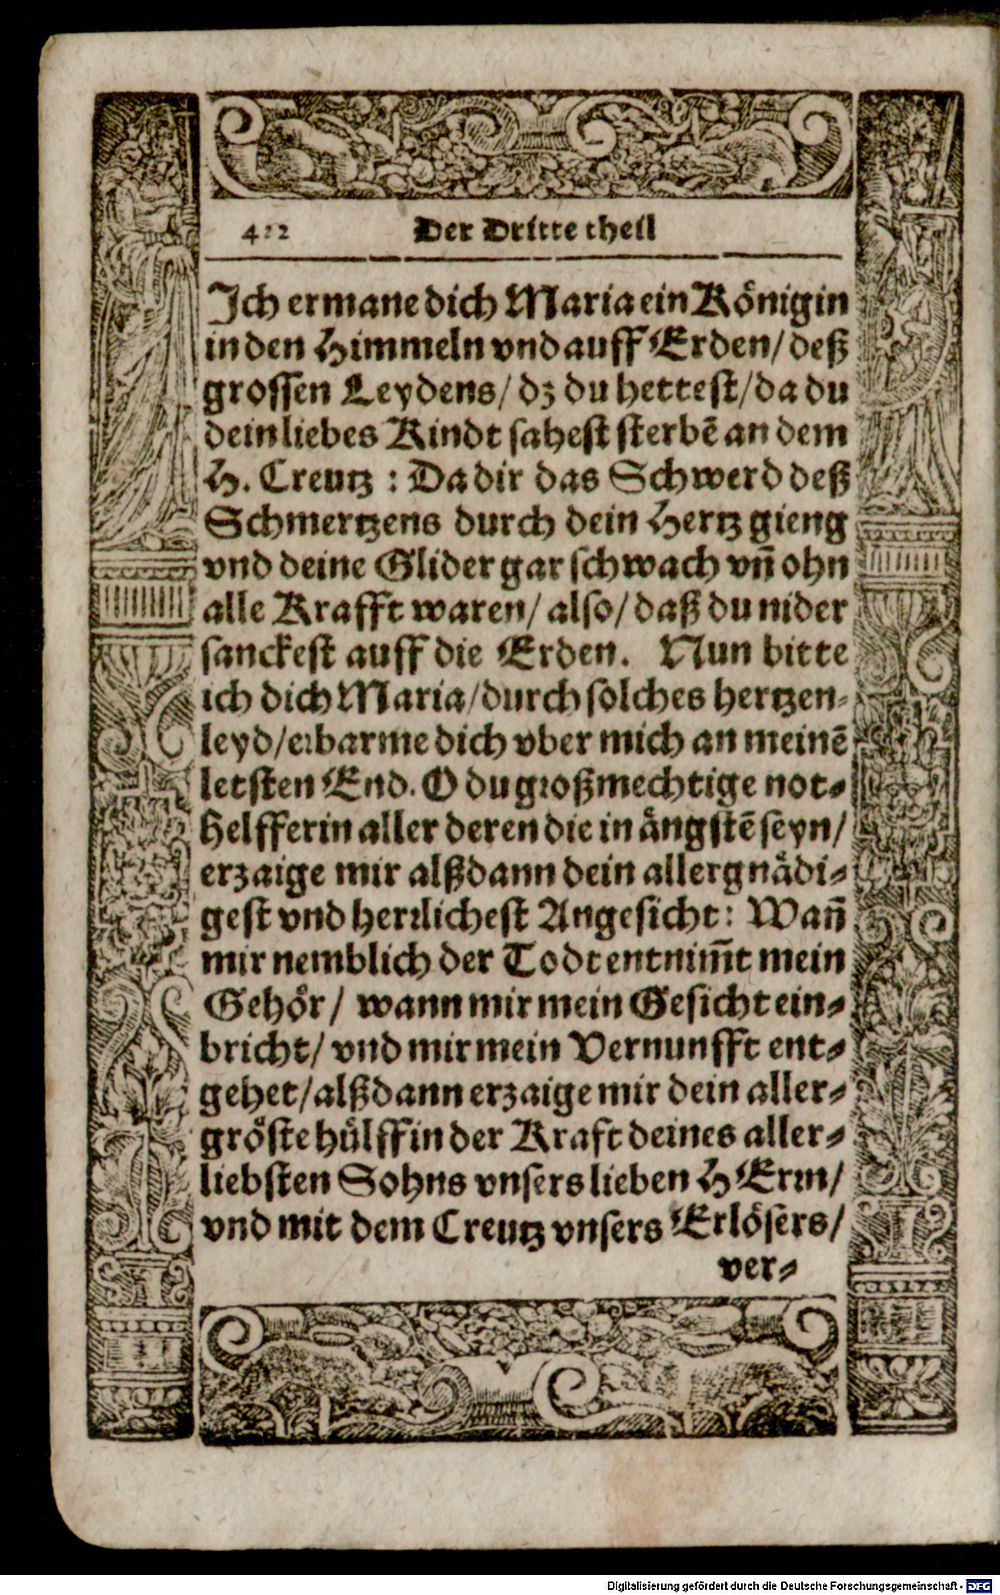 412 Der Dritte theil
Ich ermane dich Maria ein Königin
in den Himmeln vnd auff Erden/ deß
grossen Leydens/ dz du hettest/ da du
dein liebes Kindt sahest sterbē an dem
H. Creutz : Da dir das Schwerd deß
Schmertzens durch dein Hertz gieng
vnd deine Glider gar schwach vn̄ ohn
alle Krafft waren/ also/ daß du nider
sanckest auff die Erden. Nun bitte
ich dich Maria/ durch solches hertzen-
leyd/ erbarme dich vber mich an meinē
letsten End. O du großmechtige not-
Helfferin aller deren die in ängstē seyn/
erzaige mir alßdann dein allergnädi-
gest vnd herrlichest Angesicht: Wan̄
mir nemblich der Todt entnim̄t mein
Gehör/ wann mir mein Gesicht ein-
bricht/ vnd mir mein Vernunfft ent-
gehet/ alßdann erzaige mir dein aller-
gröste hülff in der Kraft deines aller-
liebsten Sohns vnsers lieben HErrn/
vnd mit dem Creutz vnsers Erlösers/
ver-
Digitalisierung gefördert durch die Deutsche Forschungsgemeinschaft - DFG